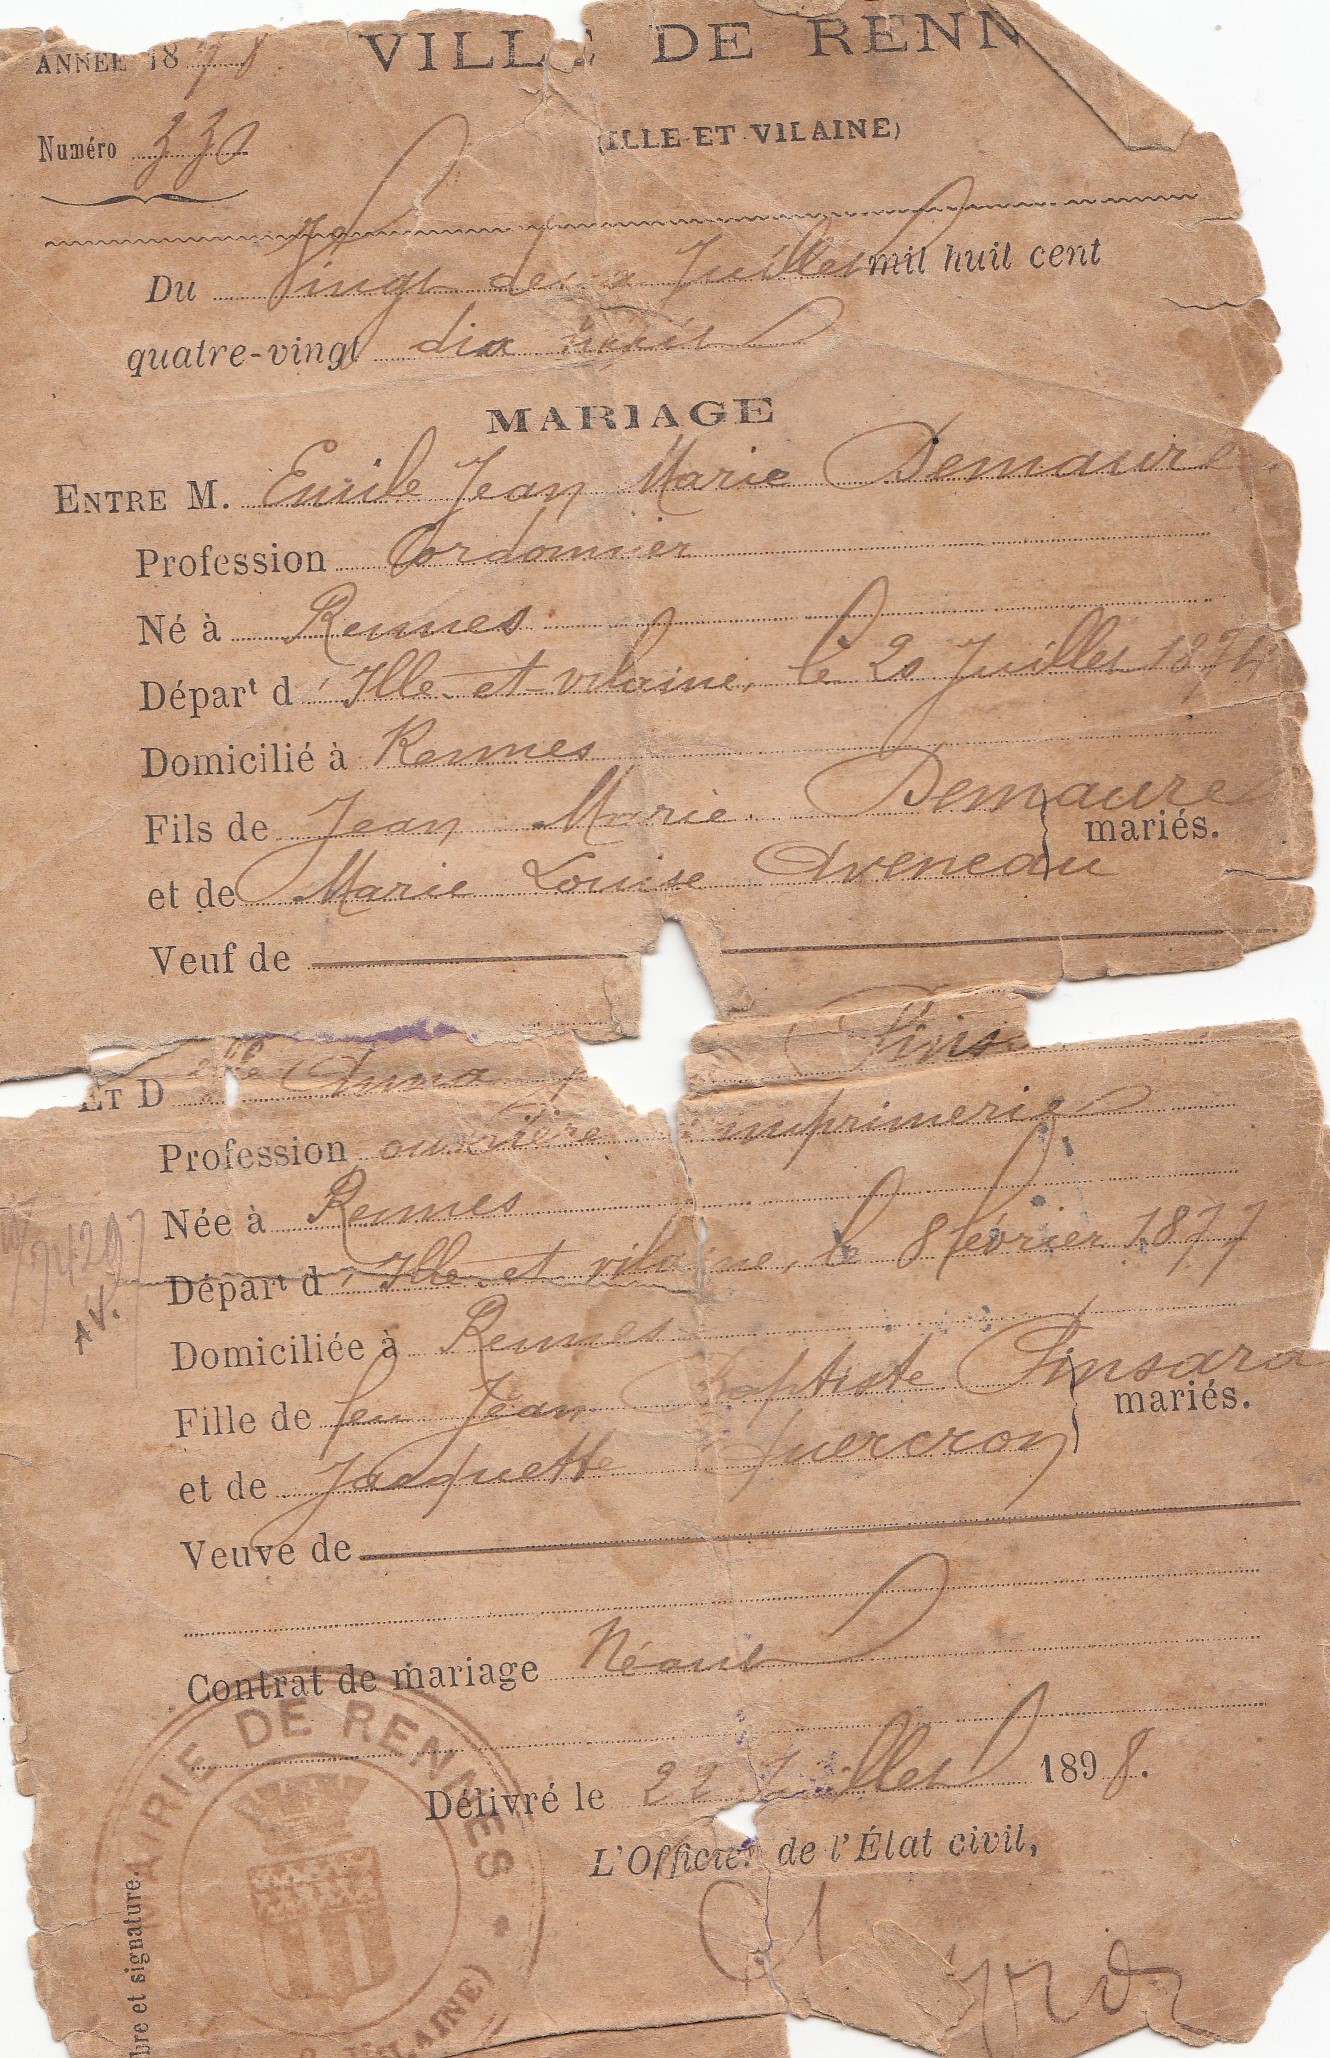 ANNÉE 1898 VILLE DE RENN
Numéro 330 (ILLE-ET-VILAINE)
Du Vingt deux Juillet mil huit cent
quatre-vingt dix huit
MARIAGE
ENTRE M. Emile Jean Marie Demaure
Profession Cordonnier
Né à Rennes
Départ d'Ille-et-vilaine, le 20 Juillet 1874
Domicilié à Rennes
Fils de Jean Marie Demaure
et de Marie Louise Aveneau
mariés.
Veuf de
ET D lle Anna Pins
Profession ouvrière imprimerie
Née à Rennes
Départ d'Ille-et vilaine, le 8 février 1877
Domiciliée à Rennes
Fille de feu Jean Baptiste Pinsara
et de Jacquette Quercron
mariés.
Veuve de
Contrat de mariage Néant
MAIRIE DE RENNES
Délivré le 22 Juillet 1898.
L'Officier de l'État civil,
bre et signature.
AV.
ILAINE)